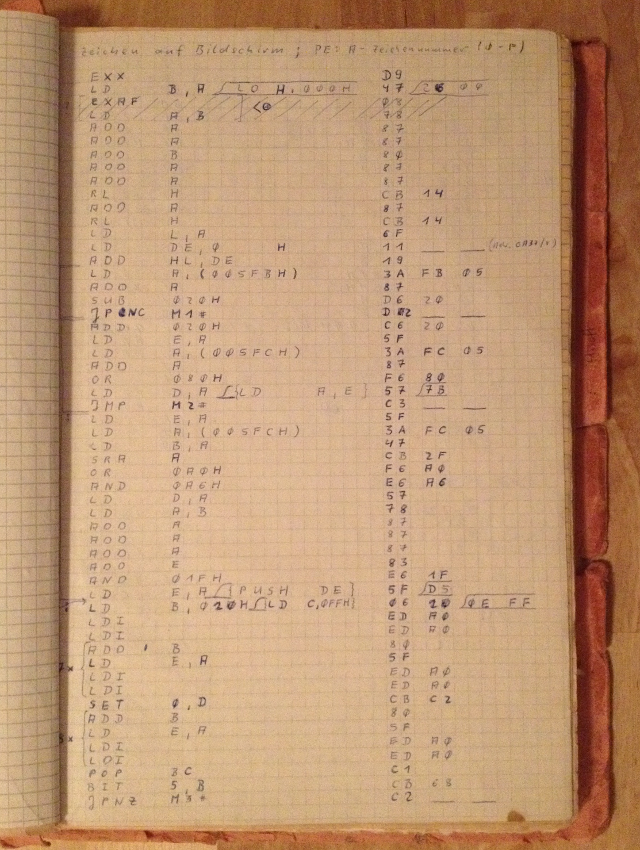 zeichen auf Bildschirm ; PE: A - Zeichennummer (0-F)
EXX D9
LD B,A LD H,000H 47 26 00
EXAF 08
LD A,B 78
ADD A 87
ADD A 87
ADD B 80
ADD A 87
ADD A 87
RL H CB 14
ADD A 87
RL H CB 14
LD L,A 6F
LD DE,0 H 11 __ __
ADD HL,DE 19
LD A,(005FBH) 3A FB 05
ADD A 87
SUB 020H D6 20
JPNC M1* D2 __ __
ADD 020H C6 20
LD E,A 5F
LD A,(005FCH) 3A FC 05
ADD A 87
OR 080H F6 80
LD D,A {LD A,E} 57 7B
JMP M2* C3 __ __
LD E,A 5F
LD A,(005FCH) 3A FC 05
LD B,A 47
SRA A CB 2F
OR 0A0H F6 A0
AND 0A6H E6 A6
LD D,A 57
LD A,B 78
ADD A 87
ADD A 87
ADD A 87
ADD E 83
AND 01FH E6 1F
LD E,A {PUSH DE} 5F D5
LD B,020H {LD C,0FFH} 06 20 0E FF
LDI ED A0
LDI ED A0
ADD B 80
7x LD E,A 5F
LDI ED A0
LDI ED A0
SET 0,D CB C2
ADD B 80
LD E,A 5F
8x LDI ED A0
LDI ED A0
POP BC C1
BIT 5,B CB 68
JPNZ M3* C2 __ __